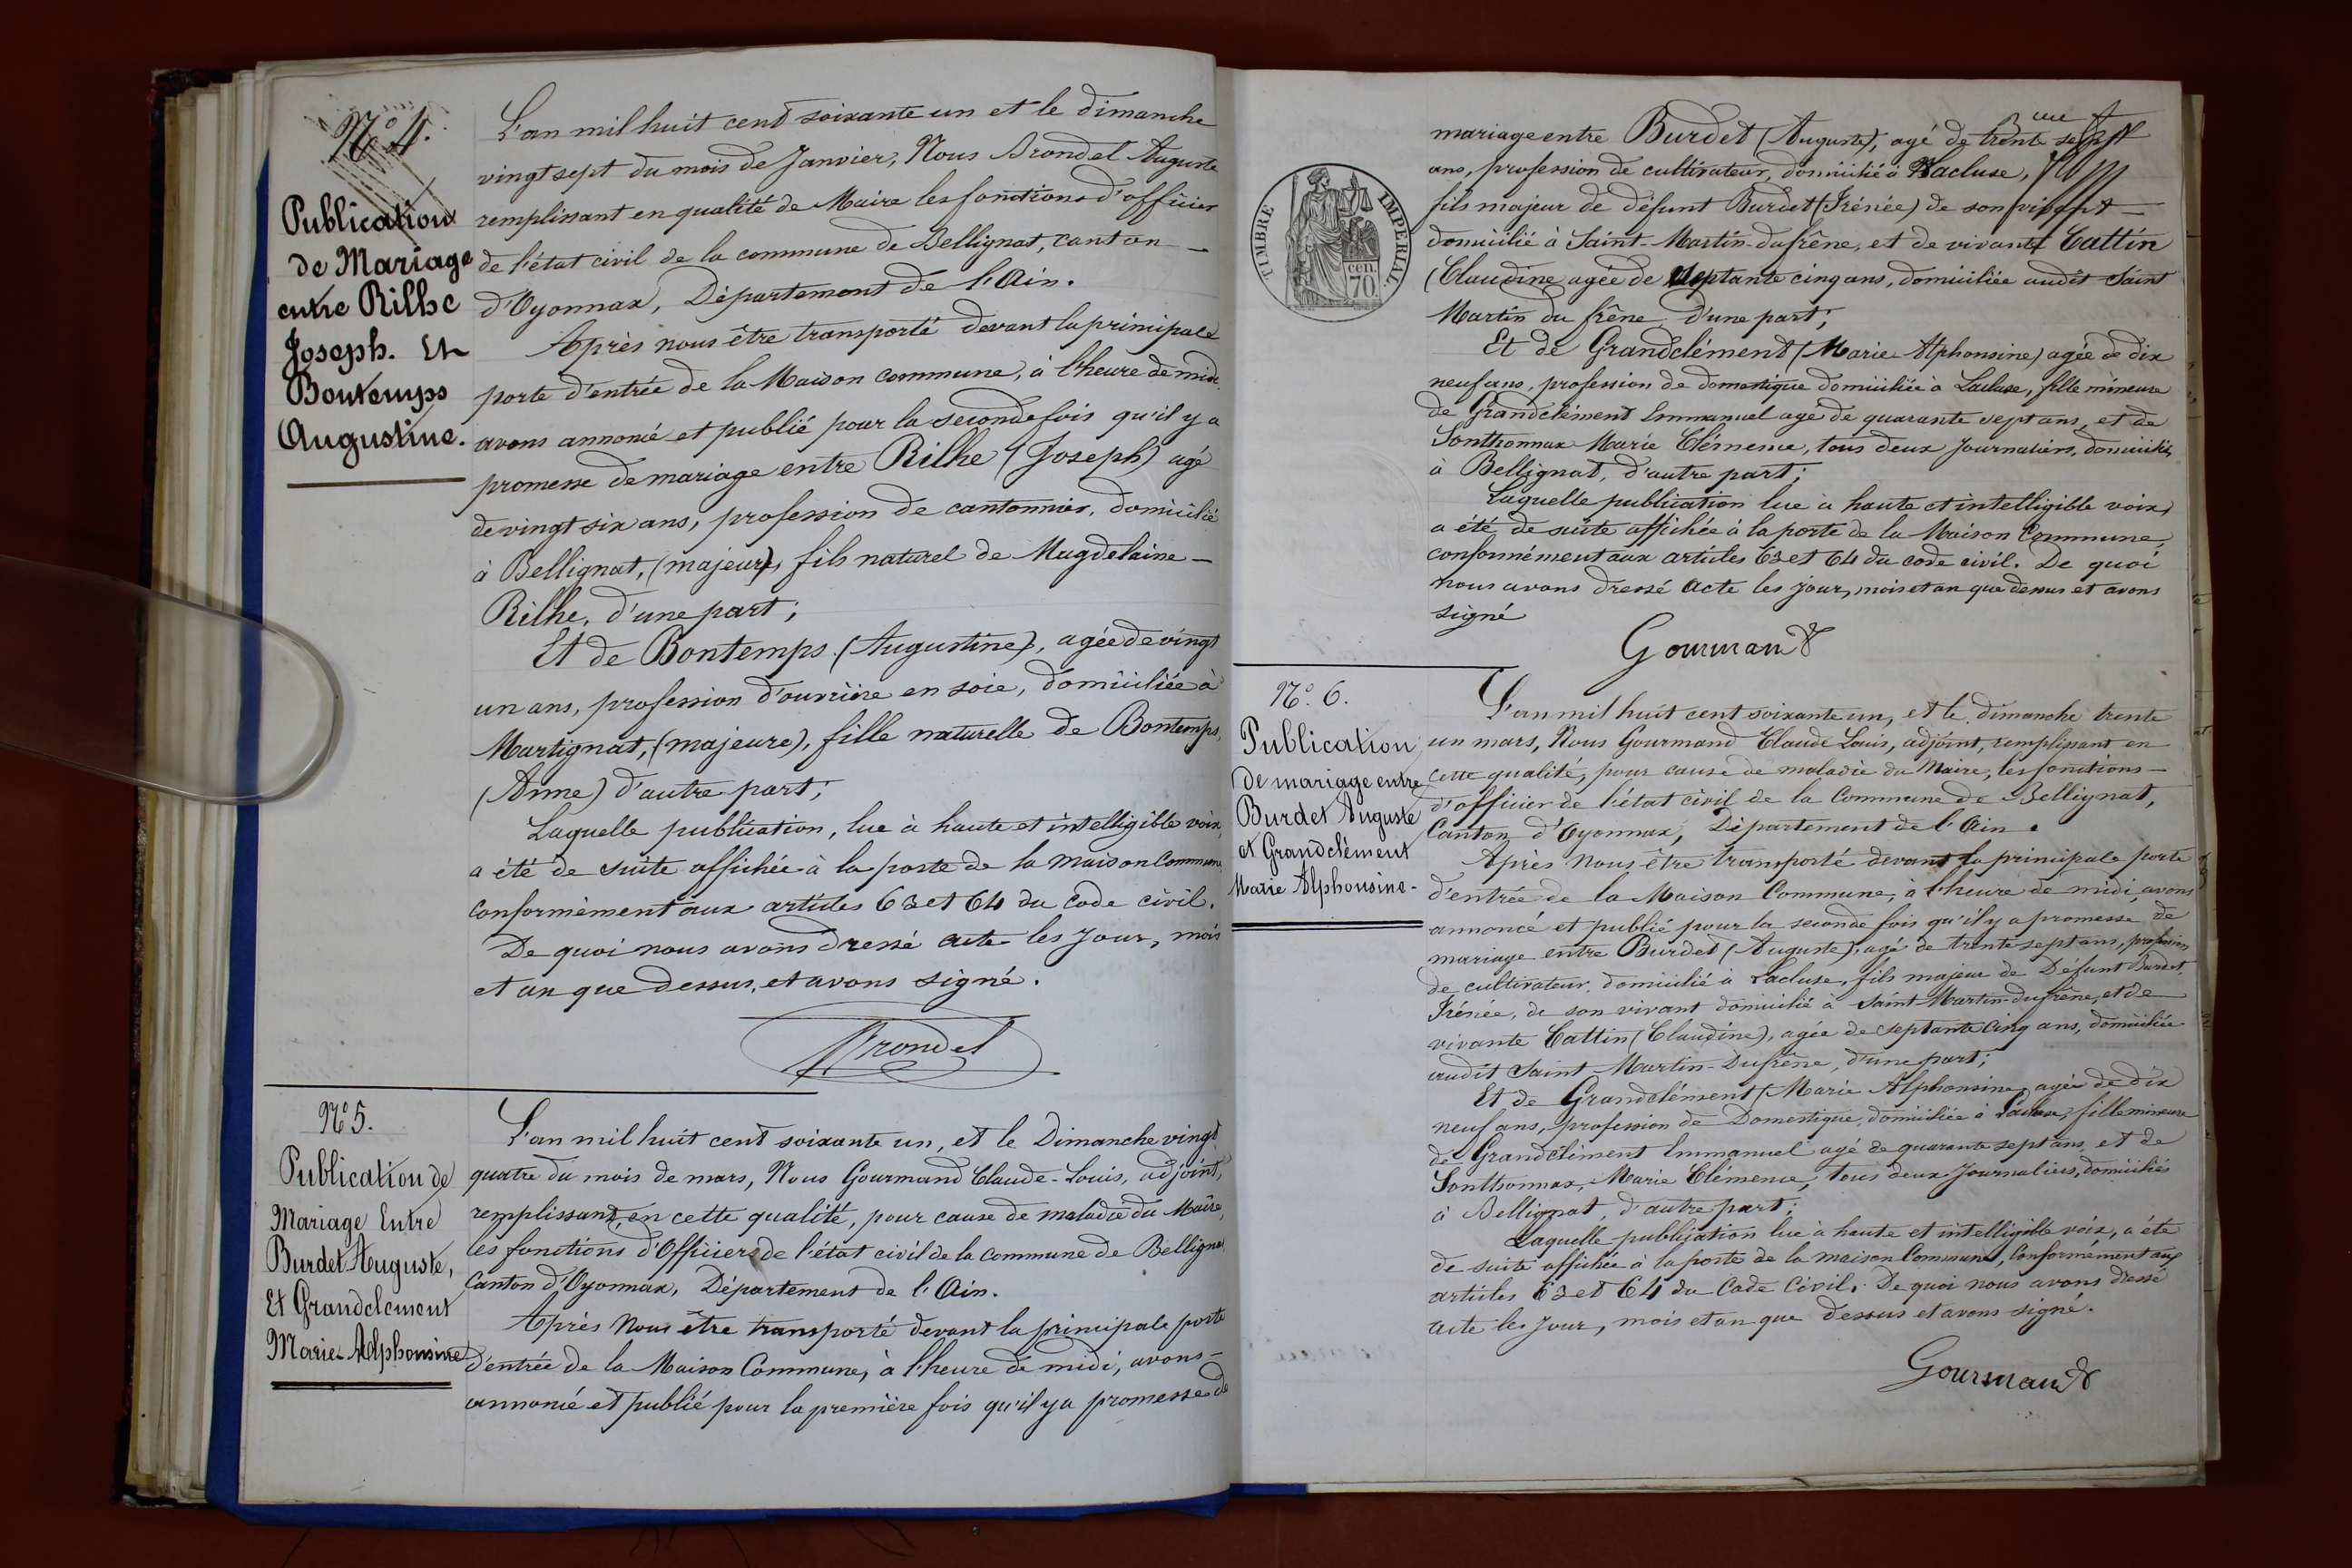 N.° 4.
Publication
de Mariage
entre Rilhe
Joseph. Et
Bontemps
Augustine.
L'an mil huit cent soixante un et le dimanche
vingt sept du mois de Janvier, Nous Arondel Auguste
remplissant en qualité de Maire les fonctions d'officier
de l'état civil de la commune de Bellignat, canton —
d'Oyonnax, Département de l'Ain.
Après nous être transporté devant la principale
porte d'entrée de la Maison commune, à l'heure de midi,
avons annoncé et publié pour la seconde fois qu'il y a
promesse de mariage entre Rilhe (Joseph) agé
de vingt six ans, profession de cantonnier, domicilié
à Bellignat, (majeur), fils naturel de Magdelaine —
Rilhe, d'une part;
Et de Bontemps (Augustine), agée de vingt
un ans, profession d'ouvrière en soie, domiciliée à
Martignat, (majeure), fille naturelle de Bontemps,
(Anne) d'autre part;
Laquelle publication, lue à haute et intelligible voix,
a été de suite affichée à la porte de la maison Commune
conformément aux articles 63 et 64 du code civil.
De quoi nous avons dressé acte les jour, mois
et an que dessus, et avons signé.
Arondel
N.° 5.
Publication de
Mariage Entre
Burdet Auguste,
Et Grandclement
Marie-Alphonsine
L'an mil huit cent soixante un, et le Dimanche vingt
quatre du mois de mars, Nous Gourmand Claude-Louis, adjoint,
remplissant, en cette qualité, pour cause de maladie du Maire,
les fonctions d'Officier de l'état civil de la commune de Bellignat
Canton d'Oyonnax, Département de l'Ain.
Après Nous être transporté devant la principale porte
d'entrée de la Maison Commune, à l'heure de midi, avons —
annoncé et publié pour la première fois qu'il y a promesse de
TIMBRE IMPERIAL
cen.
70
mariage entre Burdet (Auguste), agé de trente sept
ans, profession de cultivateur, domicilié à Lacluse,
fils majeur de défunt Burdet (Irénée) de son vivant —
domicilié à Saint-Martin-dufrêne, et de vivante Cattin
(Claudine agée de septante cinq ans, domiciliée audit Saint
Martin du frêne d'une part;
Et de Grandclément (Marie Alphonsine) agée de dix
neuf ans, profession de domestique domiciliée à Lacluse, fille mineure
de Grandclément Emmanuel agé de quarante sept ans, et de
Sonthonnax Marie Clémence, tous deux journaliers, domiciliés
à Bellignat, d'autre part;
Laquelle publication lue à haute et intelligible voix,
a été de suite affichée à la porte de la Maison Commune,
conformément aux articles 63 et 64 du code civil. De quoi
nous avons dressé acte les jour, mois et an que dessus et avons
signé
Gourmand
N.° 6.
Publication
de mariage entre
Burdet Auguste
et Grandclément
Marie Alphonsine.
L'an mil huit cent soixante un, et le dimanche trente
un mars, Nous Gourmand Claude Louis, adjoint, remplissant en
cette qualité, pour cause de maladie du Maire, les fonctions —
d'officier de l'état civil de la Commune de Bellignat,
Canton d'Oyonnax, Département de l'Ain.
Après Nous être transporté devant la principale porte
d'entrée de la Maison Commune, à l'heure de midi, avons
annoncé et publié pour la seconde fois qu'il y a promesse de
mariage entre Burdet (Auguste), agé de trente sept ans, profession
de cultivateur, domicilié à Lacluse, fils majeur de Défunt Burdet,
Irénée, de son vivant domicilié à Saint-Martin-dufrêne, et de
vivante Cattin (Claudine), agée de septante cinq ans, domiciliée
audit Saint-Martin-Dufrêne, d'une part;
Et de Grandclément (Marie Alphonsine, agée de dix
neuf ans, profession de Domestique, domiciliée à Lacluse, fille mineure
de Grandclément Emmanuel agé de quarante sept ans, et de
Sonthonnax, Marie Clémence, tous deux Journaliers, domiciliés
à Bellignat, d'autre part;
Laquelle publication lue à haute et intelligible voix, a été
de suite affichée à la porte de la maison Commune, Conformément aux
articles 63 et 64 du Code Civil. De quoi nous avons dressé
acte les jour, mois et an que dessus et avons signé.
Gourmand